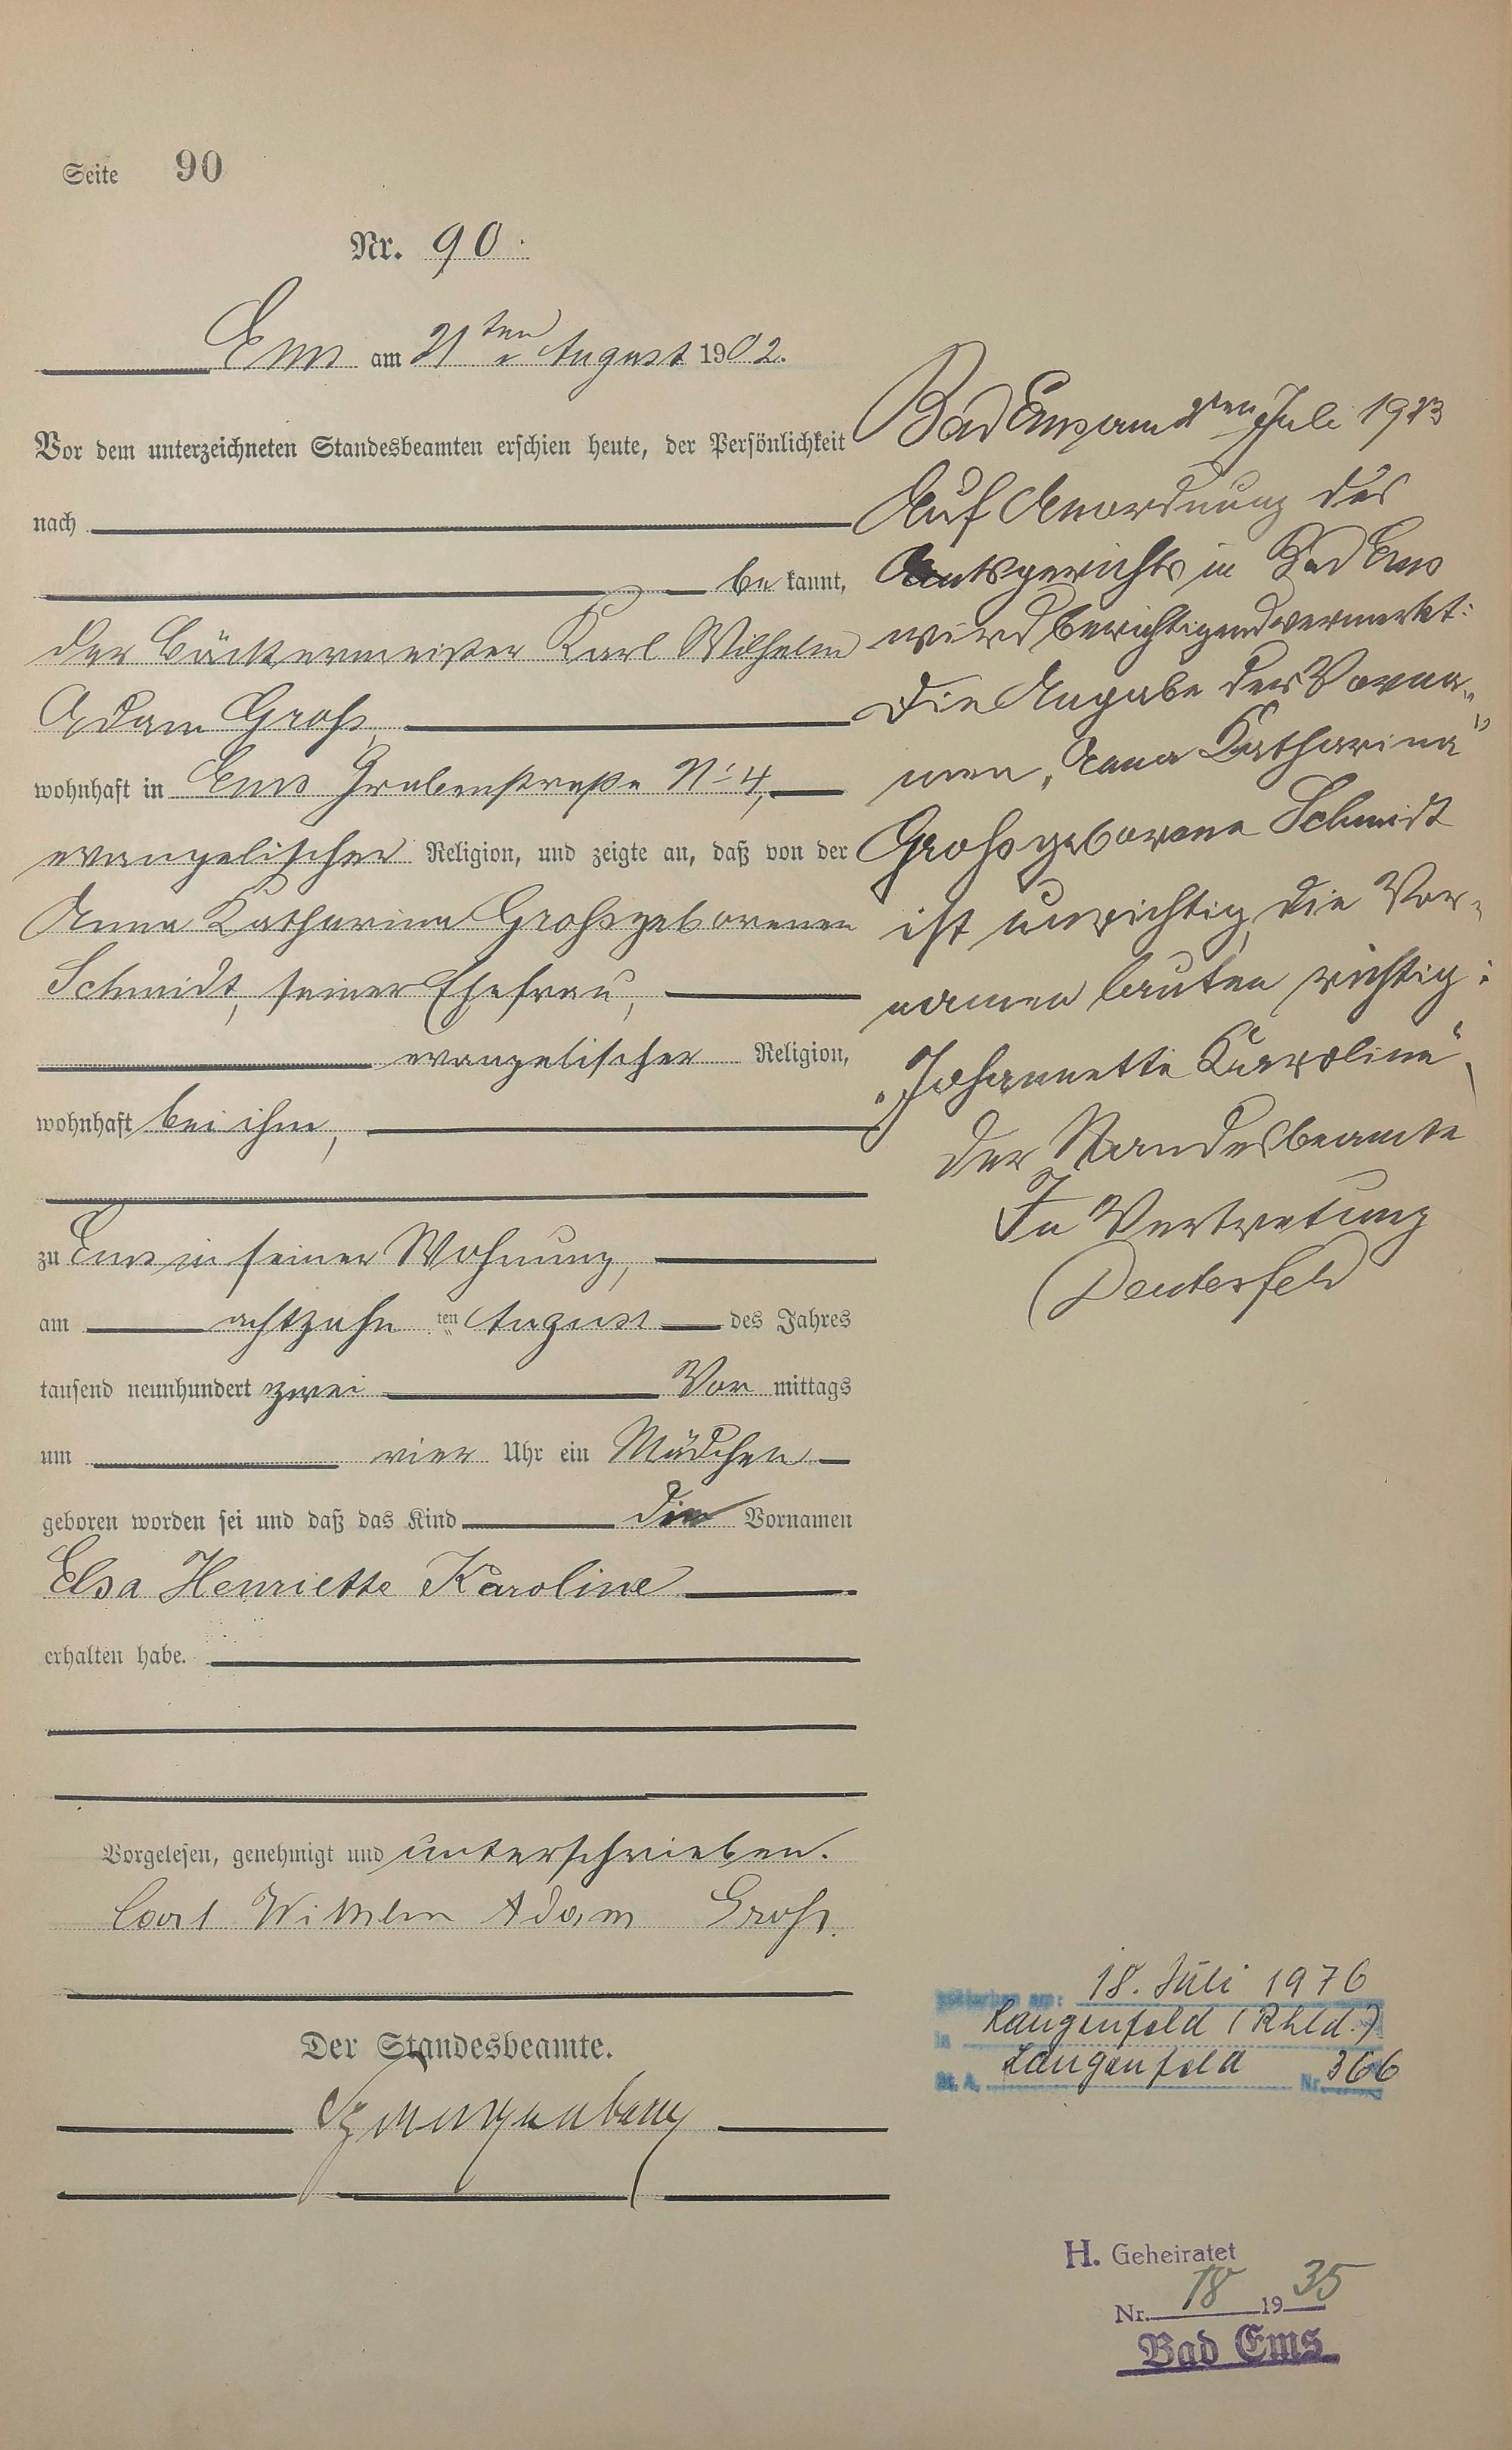 Seite 90
Nr. 90.
Ems am 21ten August 1902.
Vor dem unterzeichneten Standesbeamten erschien heute, der Persönlichkeit
nach
be kannt,
der Bäckermeister Karl Wilhelm
Adam Groß,
wohnhaft in Ems Grabenstraße No 4,
evangelischer Religion, und zeigte an, daß von der
Anna Katharina Groß geborenen
Schmidt, seiner Ehefrau,
evangelischer Religion,
wohnhaft bei ihm,
zu Ems in seiner Wohnung,
am achtzehn ten August des Jahres
tausend neunhundert zwei Vor mittags
um vier Uhr ein Mädchen
geboren worden sei und daß das Kind die Vornamen
Elsa Henriette Karoline
erhalten habe.
Vorgelesen, genehmigt und unterschrieben.
Carl Wilhelm Adam Groß.
Der Standesbeamte.
Bad Ems am ten Juli 1913
Auf Anordnung des
Amtsgerichts in Bad Ems
wird berichtigend vermerkt:
Die Angabe der Vorna-
men „Anna Katharina"
Groß geborene Schmidt
ist unrichtig, die Vor-
namen lauten richtig:
„Johannette Karoline",
Der Standesbeamte
In Vertretung
gestorben am: 18. Juli 1976
in Langenfeld (Rhld.)
St. A. Langenfeld Nr. 366
H. Geheiratet
Nr. 18 1935
Bad Ems